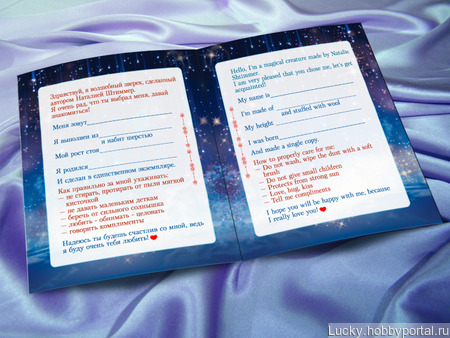 Здравствуй, я волшебный зверек, сделанный
автором Наталией Штиммер.
Я очень рад, что ты выбрал меня, давай
знакомиться!
Меня зовут
Я выполнен из и набит шерстью
Мой рост стоя
Я родился
И сделан в единственном экземпляре.
Как правильно за мной ухаживать:
– не стирать, протирать от пыли мягкой
кисточкой
– не давать маленьким деткам
– беречь от сильного солнышка
– любить - обнимать - целовать
– говорить комплименты
Надеюсь ты будешь счастлив со мной, ведь
я буду очень тебя любить!
Hello, I'm a magical creature made by Natalie
Shtimmer.
I am very pleased that you chose me, let's get
acquainted!
My name is
I'm made of and stuffed with wool
My height
I was born
And made a single copy.
How to properly care for me:
– Do not wash, wipe the dust with a soft
brush
– Do not give small children
– Protects from strong sun
– Love, hug, kiss
– Tell me compliments
I hope you will be happy with me, because
I really love you!
Lucky.hobbyportal.ru